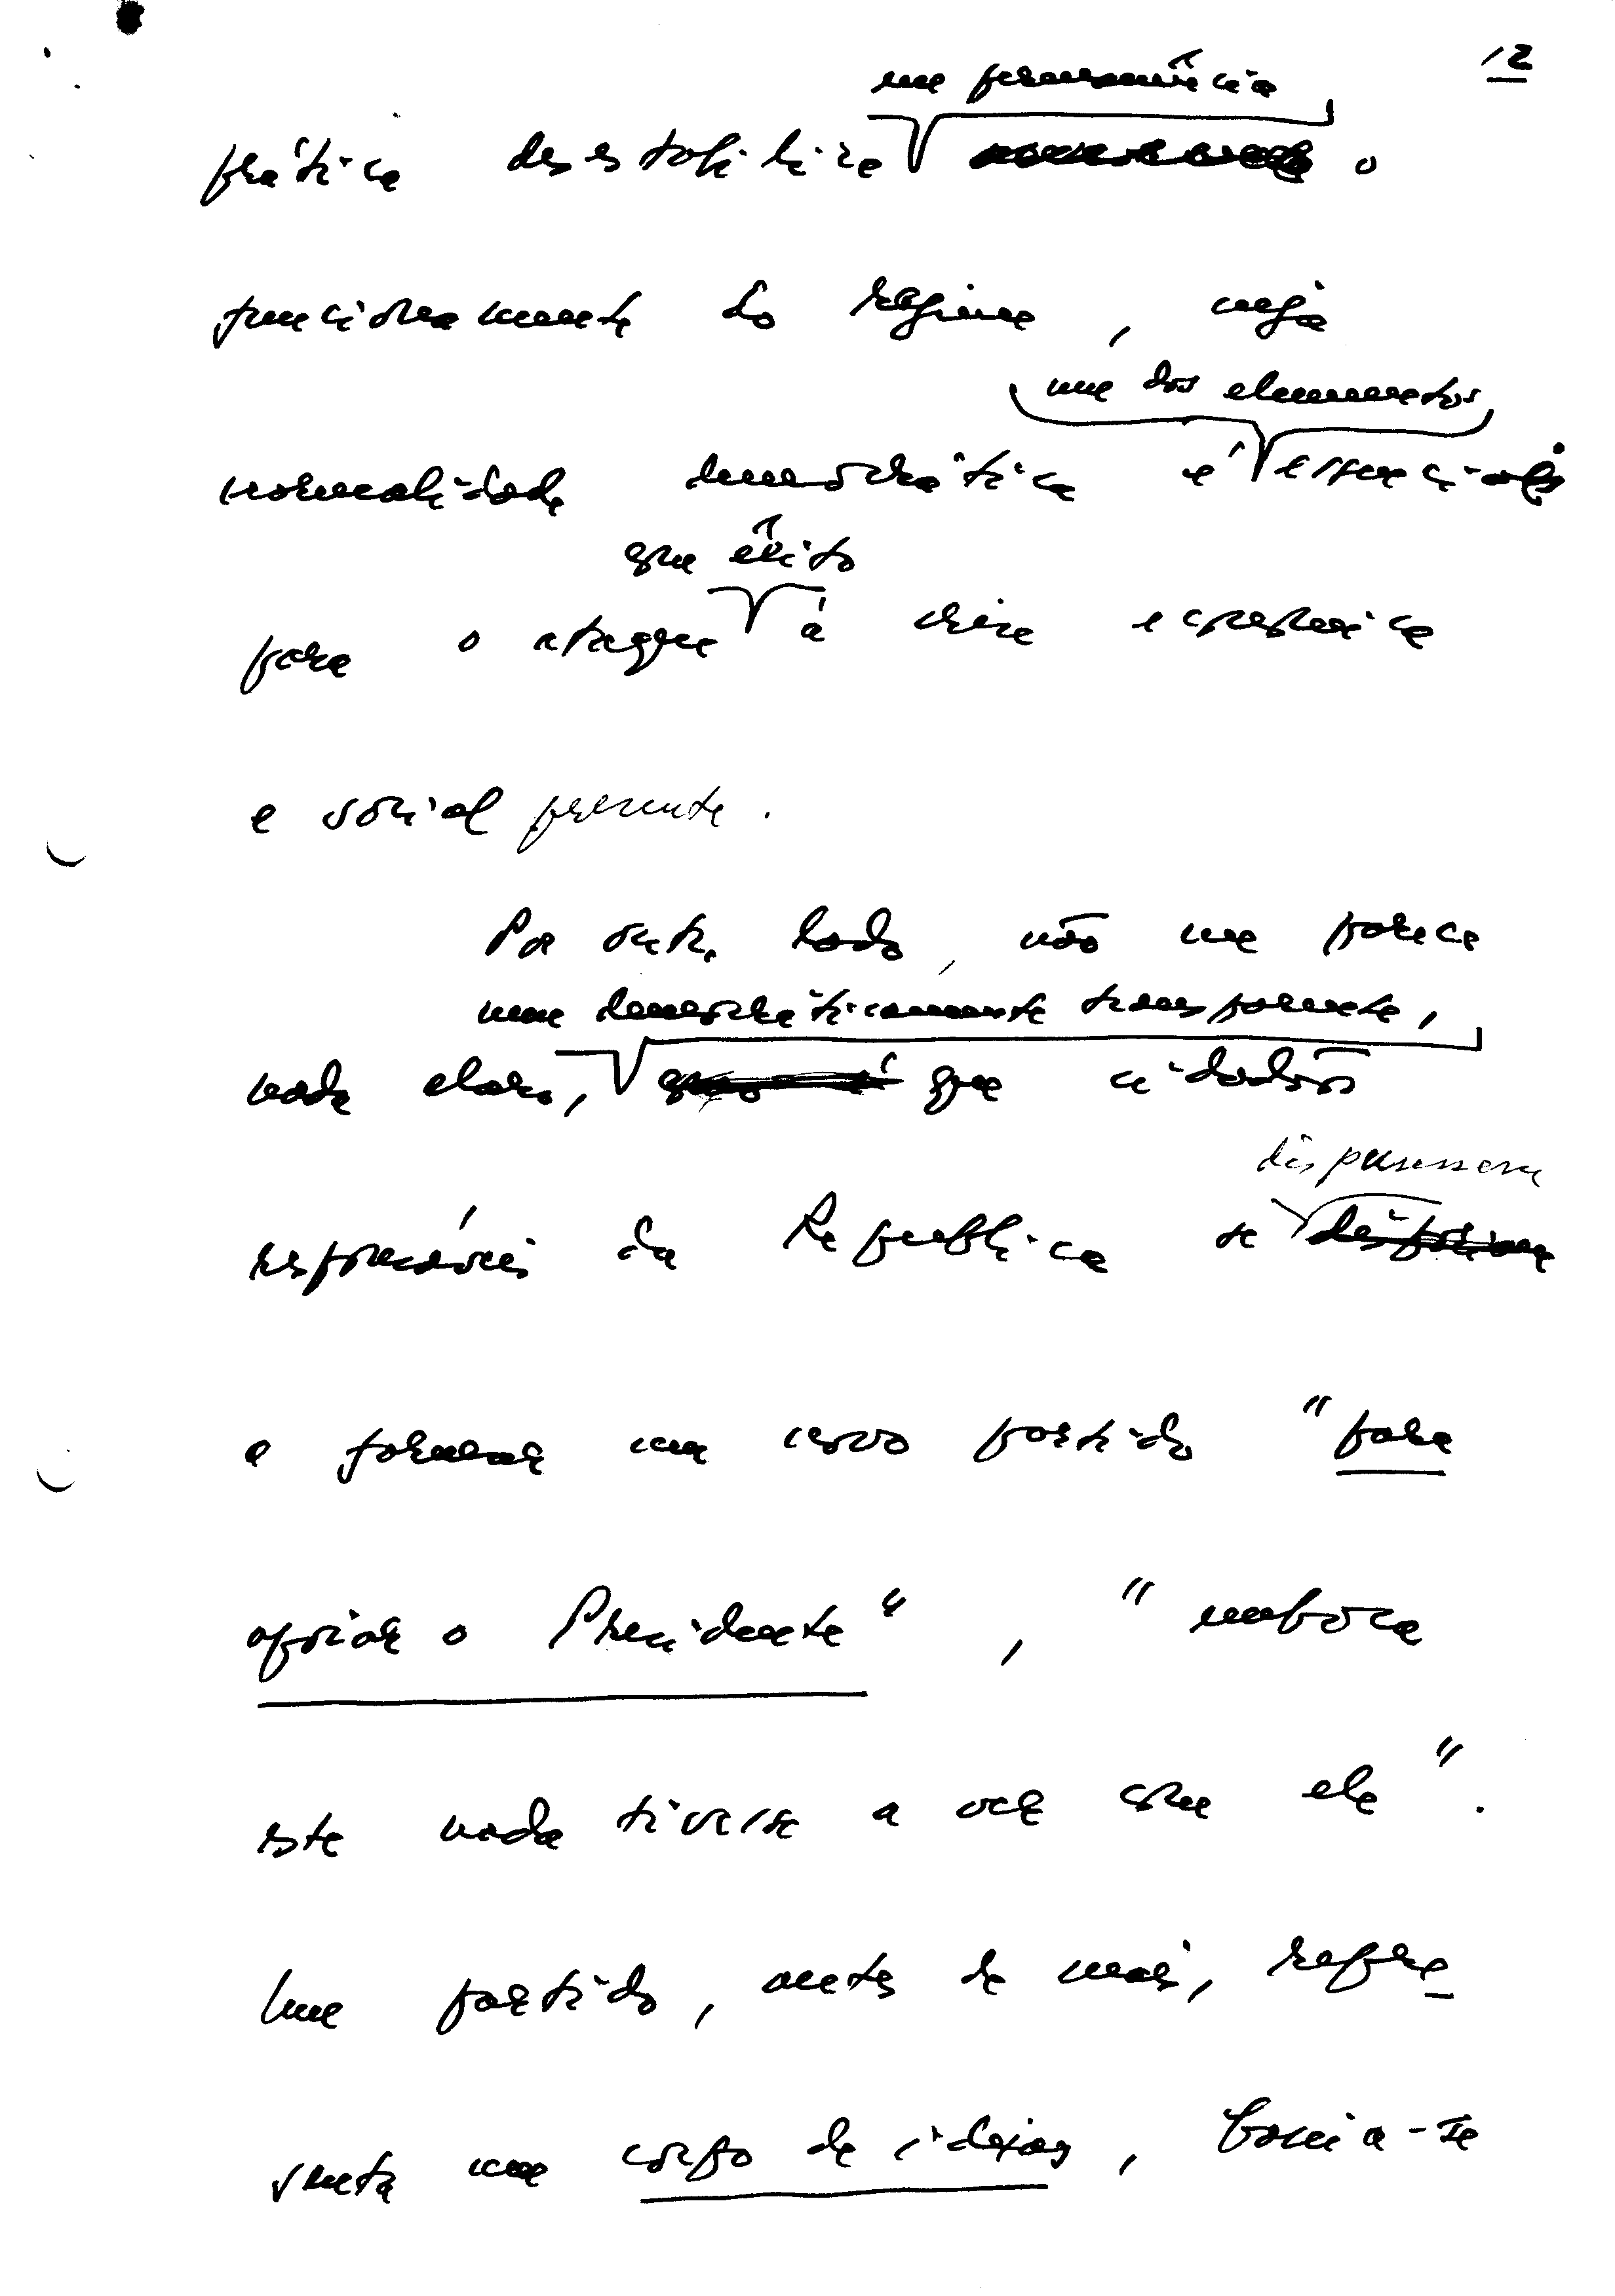 12
em permanência
prática desestabiliza o
funcionamento do regime, cuja
um dos elementos
normalidade democrática é essenciais
com êxito
para o ataque à crise económica
e social presente.
Por outro lado, não me parece
nem democráticamente transparente,
nada claro, que cidadãos
responsáveis da República se
dispusessem
a formar um novo partido "para
apoiar o Presidente", "embora
este nada tivesse a ver com ele".
Um partido, antes de mais, repre-
senta um corpo de ideias, baseia-se